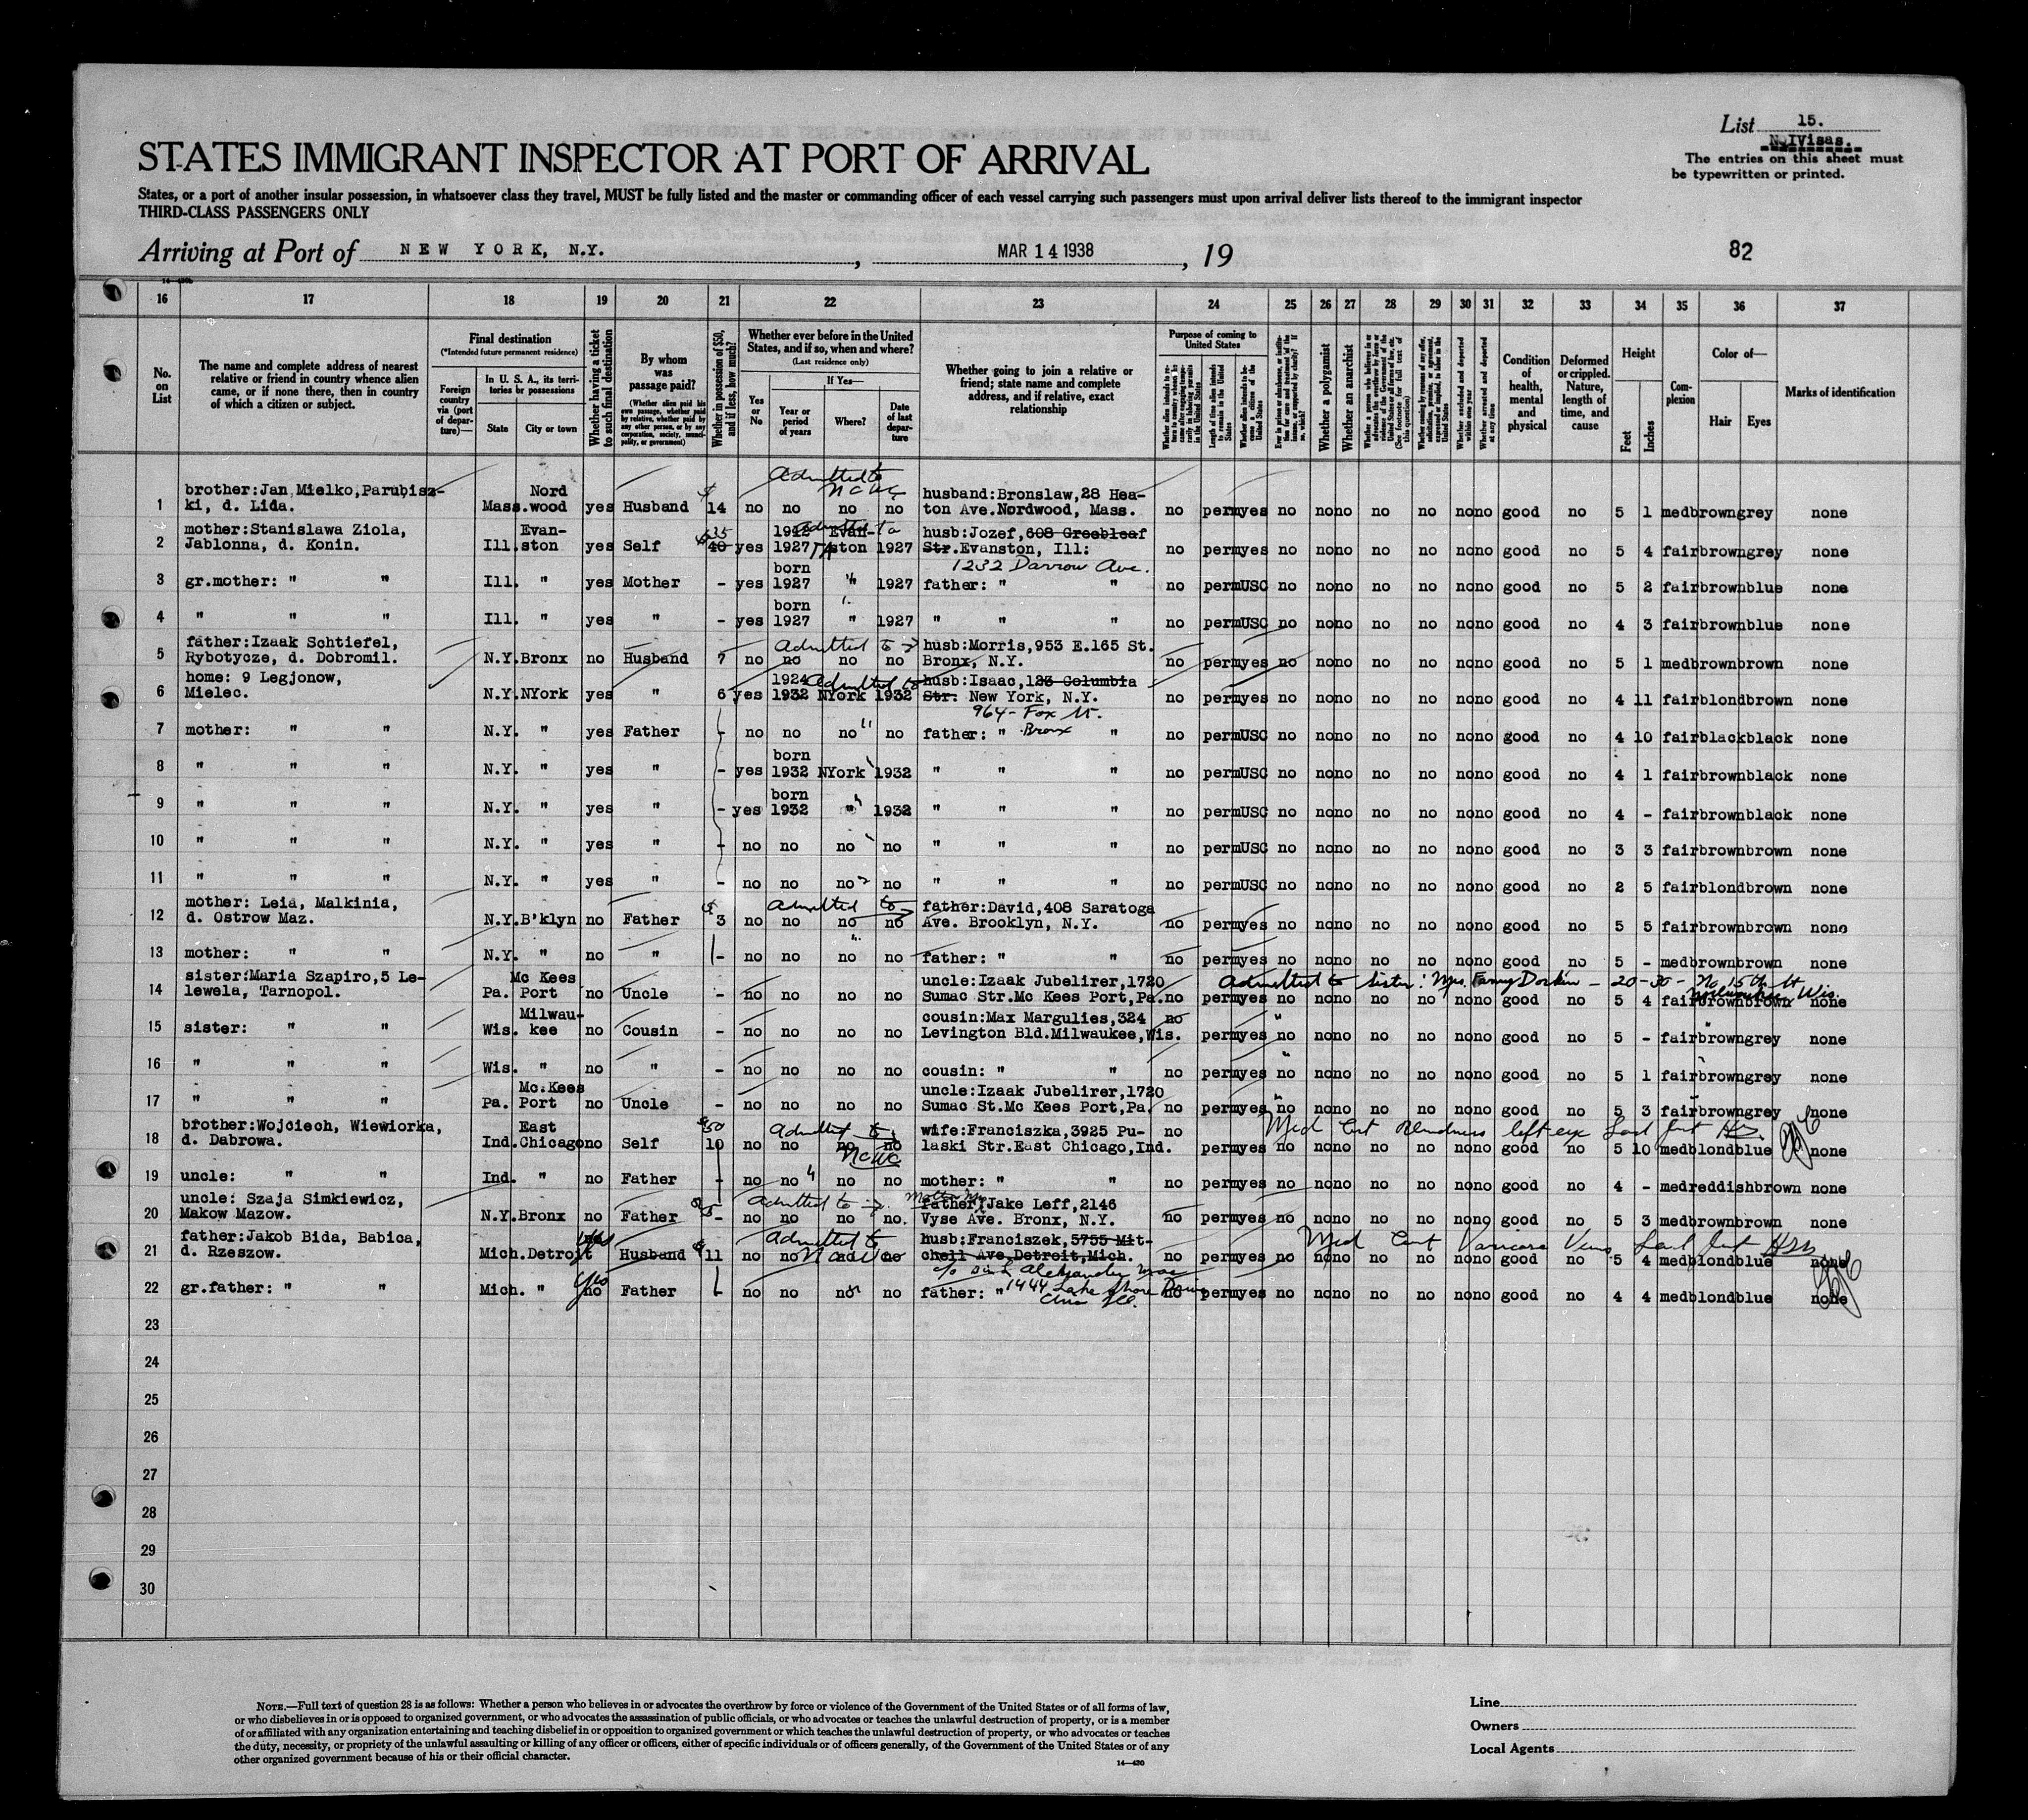 List 15.
NQIVisas.
The entries on this sheet must
be typewritten or printed.
STATES IMMIGRANT INSPECTOR AT PORT OF ARRIVAL
States, or a port of another insular possession, in whatsoever class they travel, MUST be fully listed and the master or commanding officer of each vessel carrying such passengers must upon arrival deliver lists thereof to the immigrant inspector
THIRD-CLASS PASSENGERS ONLY
Arriving at Port of NEW YORK, N.Y. , MAR 14 1938 , 19
82
16 17 18 19 20 21 22 23 24 25 26 27 28 29 30 31 32 33 34 35 36 37
No. on List
The name and complete address of nearest relative or friend in country whence alien came, or if none there, then in country of which a citizen or subject.
Final destination
(*Intended future permanent residence)
Foreign country via (port of departure)—
In U. S. A., its territories or possessions
State
City or town
Whether having a ticket to such final destination
By whom was passage paid?
(Whether alien paid his own passage, whether paid by relative, whether paid by any other person, or by any corporation, society, municipality, or government)
Whether in possession of $50, and if less, how much?
Whether ever before in the United States, and if so, when and where?
(Last residence only)
Yes or No
If Yes—
Year or period of years
Where?
Date of last departure
Whether going to join a relative or friend; state name and complete address, and if relative, exact relationship
Purpose of coming to United States
Length of time alien intends to remain in the United States
Whether alien intends to become a citizen of the United States
Whether a polygamist
Whether an anarchist
Condition of health, mental and physical
Deformed or crippled. Nature, length of time, and cause
Height
Feet
Inches
Complexion
Color of—
Hair
Eyes
Marks of identification
Admitted to
NCWC
1 brother:Jan Mielko,Parubisz-ki, d. Lida. Mass. Nordwood yes Husband $ 14 no no no no husband:Bronslaw,28 Heaton Ave.Nordwood, Mass. no perm yes no no no no no no no good no 5 1 med brown grey none
2 mother:Stanislawa Ziola, Jablonna, d. Konin. Ill. Evanston yes Self $35 40 yes 1912 1927 Evanston 1927 Admitted to husb:Jozef,608 Greebleaf Str.Evanston, Ill: 1232 Darrow Ave. no perm yes no no no no no no no good no 5 4 fair brown grey none
3 gr.mother: " " Ill. " yes Mother - yes born 1927 " 1927 father: " " no perm USC no no no no no no no good no 5 2 fair brown blue none
4 " " " Ill. " yes " - yes born 1927 " 1927 " " " no perm USC no no no no no no no good no 4 3 fair brown blue none
5 father:Izaak Schtiefel, Rybotycze, d. Dobromil. N.Y. Bronx no Husband 7 no no no no Admitted to husb:Morris,953 E.165 St. Bronx, N.Y. no perm yes no no no no no no no good no 5 1 med brown brown none
6 home: 9 Legjonow, Mielec. N.Y. NYork yes " 6 yes 1924 1932 NYork 1932 Admitted to husb:Isaac,123 Columbia Str. New York, N.Y. 964- Fox St. Bronx no perm yes no no no no no no no good no 4 11 fair blond brown none
7 mother: " " N.Y. " yes Father - no no no no father: " " no perm USC no no no no no no no good no 4 10 fair black black none
8 " " " N.Y. " yes " - yes born 1932 NYork 1932 " " " no perm USC no no no no no no no good no 4 1 fair brown black none
9 " " " N.Y. " yes " - yes born 1932 " 1932 " " " no perm USC no no no no no no no good no 4 - fair brown black none
10 " " " N.Y. " yes " - no no no no " " " no perm USC no no no no no no no good no 3 3 fair brown brown none
11 " " " N.Y. " yes " - no no no no " " " no perm USC no no no no no no no good no 2 5 fair blond brown none
12 mother: Leia, Malkinia, d. Ostrow Maz. N.Y. B'klyn no Father $ 3 no no no no Admitted to father:David,408 Saratoga Ave. Brooklyn, N.Y. no perm yes no no no no no no no good no 5 5 fair brown brown none
13 mother: " " N.Y. " no " - no no no no father: " " no perm yes no no no no no no no good no 5 - med brown brown none
14 sister:Maria Szapiro,5 Lelewela, Tarnopol. Pa. Mc Kees Port no Uncle - no no no no uncle:Izaak Jubelirer,1720 Sumac Str.Mc Kees Port,Pa. no perm yes no no no no no no no good no 5 4 fair brown brown none
Admitted to Sister: Mrs. Fanny Dorkin - 20-30- No. 15th St Milwaukee Wis.
15 sister: " " Wis. Milwaukee no Cousin - no no no no cousin:Max Margulies,324 Levington Bld.Milwaukee,Wis. no perm yes no no no no no no no good no 5 - fair brown grey none
16 " " " Wis. " no " - no no no no cousin: " " no perm yes no no no no no no no good no 5 1 fair brown grey none
17 " " " Pa. Mc.Kees Port no Uncle - no no no no uncle:Izaak Jubelirer,1720 Sumac St.Mc Kees Port,Pa. no perm yes no no no no no no no good no 5 3 fair brown grey none
18 brother:Wojciech, Wiewiorka, d. Dabrowa. Ind. East Chicago no Self $50 10 no no no no Admitted to NCWC wife:Franciszka,3925 Pulaski Str.East Chicago,Ind. no perm yes no no no no no no no good no 5 10 med blond blue none
Med Cert Blindness left eye
19 uncle: " " Ind. " no Father - no no no no mother: " " no perm yes no no no no no no no good no 4 - med reddish brown none
20 uncle: Szaja Simkiewicz, Makow Mazow. N.Y. Bronx no Father $5 - no no no no. Admitted to father:Jake Leff,2146 Vyse Ave. Bronx, N.Y. no perm yes no no no no no no no good no 5 3 med brown brown none
21 father:Jakob Bida, Babica, d. Rzeszow. Mich. Detroit yes Husband $ 11 no no no no Admitted to husb:Franciszek,5755 Mitchell Ave Detroit,Mich. no perm yes no no no no no no no good no 5 4 med blond blue none
Med Cert Varicose Veins
22 gr.father: " " Mich. " yes no Father - no no no no father: " " 1444 Lake Shore Drive no perm yes no no no no no no no good no 4 4 med blond blue none
23
24
25
26
27
28
29
30
NOTE.—Full text of question 28 is as follows: Whether a person who believes in or advocates the overthrow by force or violence of the Government of the United States or of all forms of law,
or who disbelieves in or is opposed to organized government, or who advocates the assassination of public officials, or who advocates or teaches the unlawful destruction of property, or is a member
of or affiliated with any organization entertaining and teaching disbelief in or opposition to organized government or which teaches the unlawful destruction of property, or who advocates or teaches
the duty, necessity, or propriety of the unlawful assaulting or killing of any officer or officers, either of specific individuals or of officers generally, of the Government of the United States or of any
other organized government because of his or their official character.
14—430
Line
Owners
Local Agents